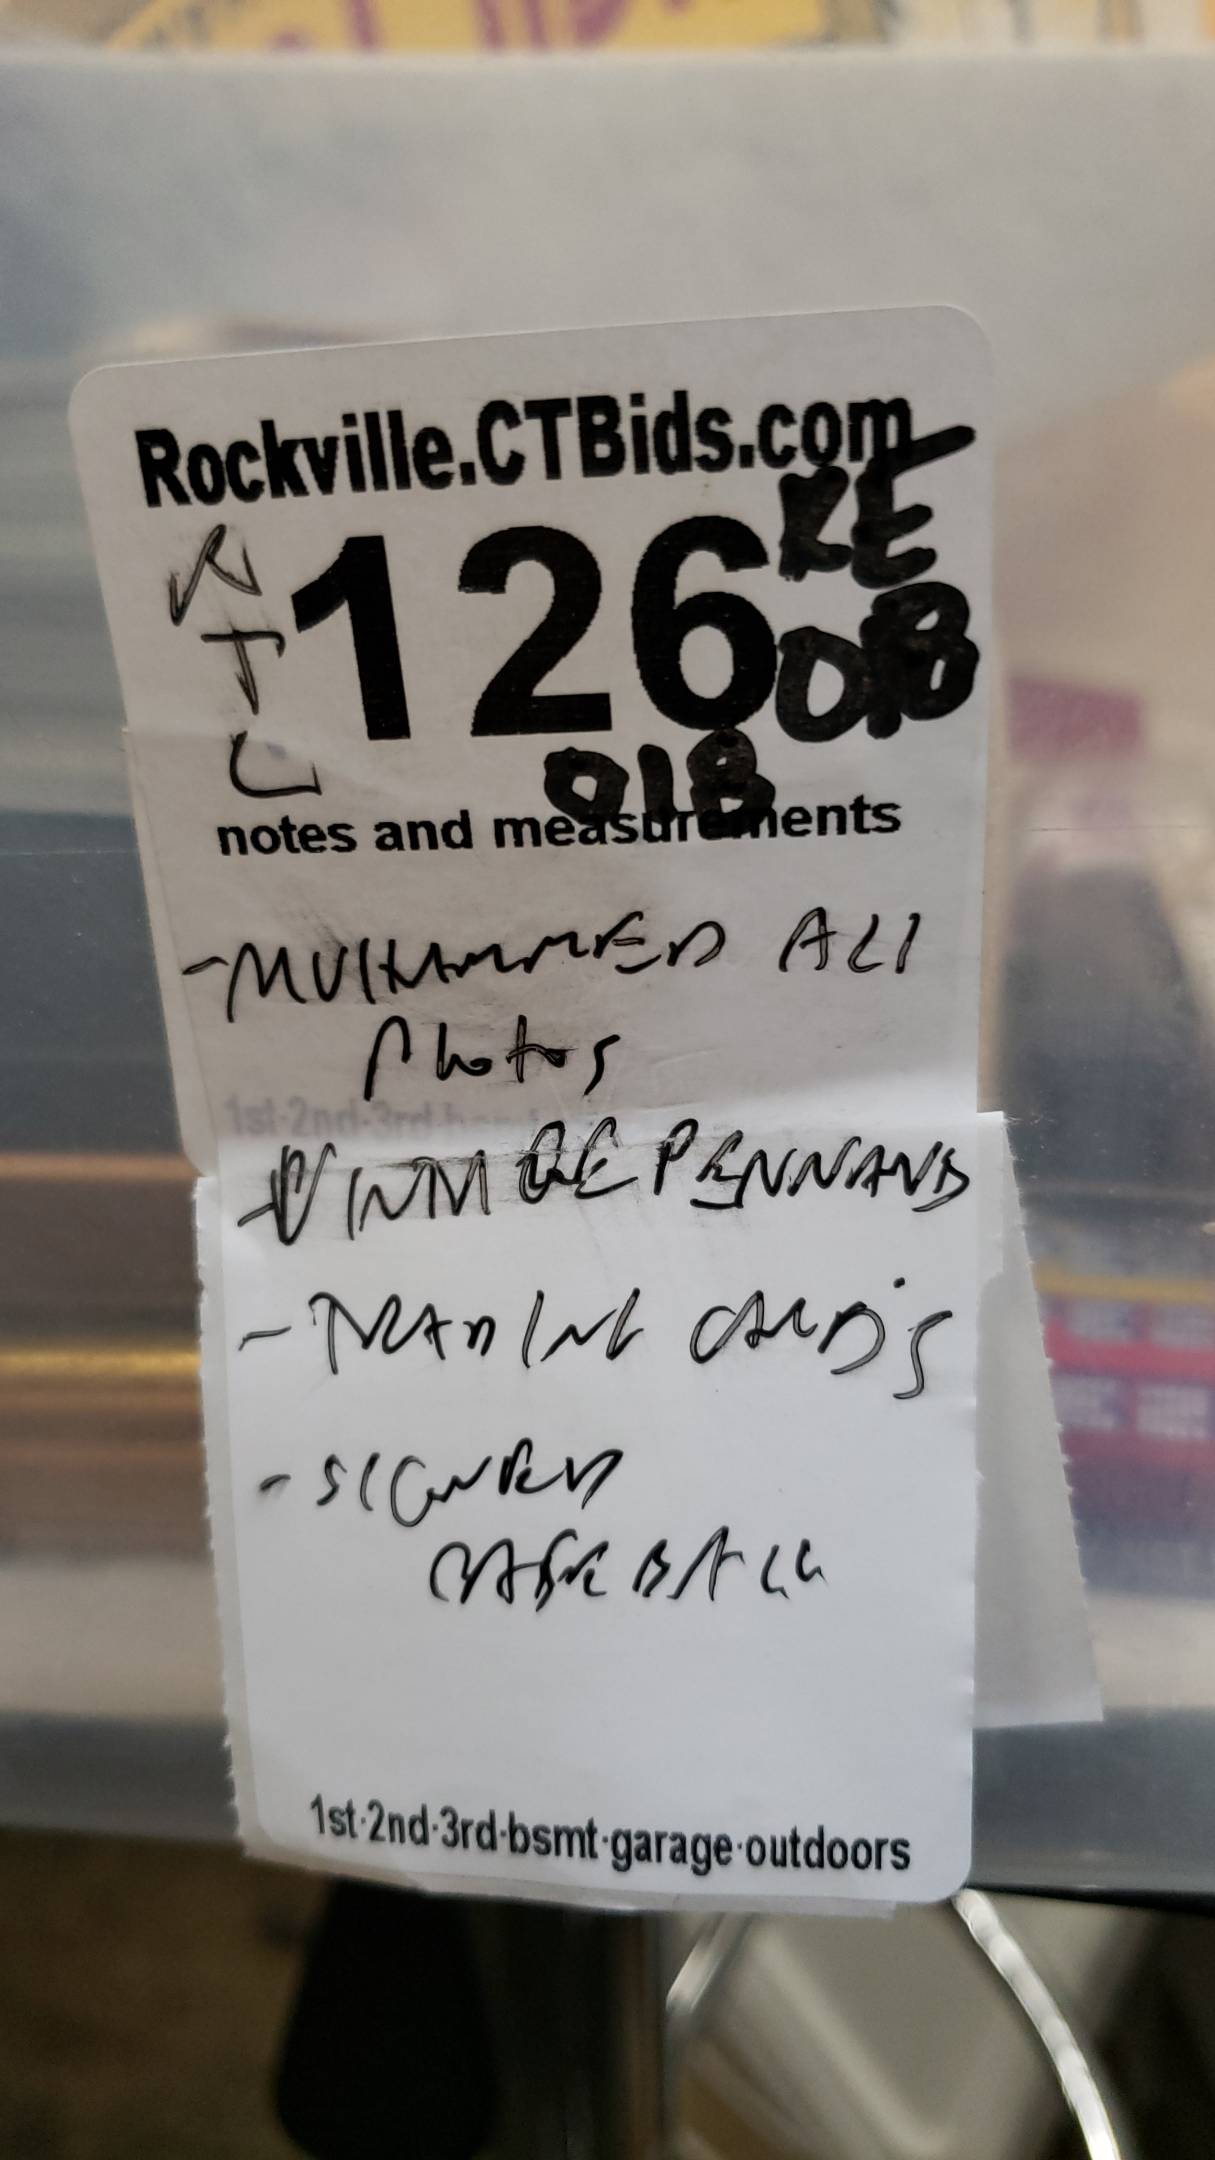 Rockville.CTBids.com
KE
126
018
018
notes and measurements
-MUHAMMED ALI
Photos
1st·2nd·3rd·b
PENNANTS
- TRADING CARDS
- SIGNED
BASEBALL
1st·2nd·3rd·bsmt·garage·outdoors